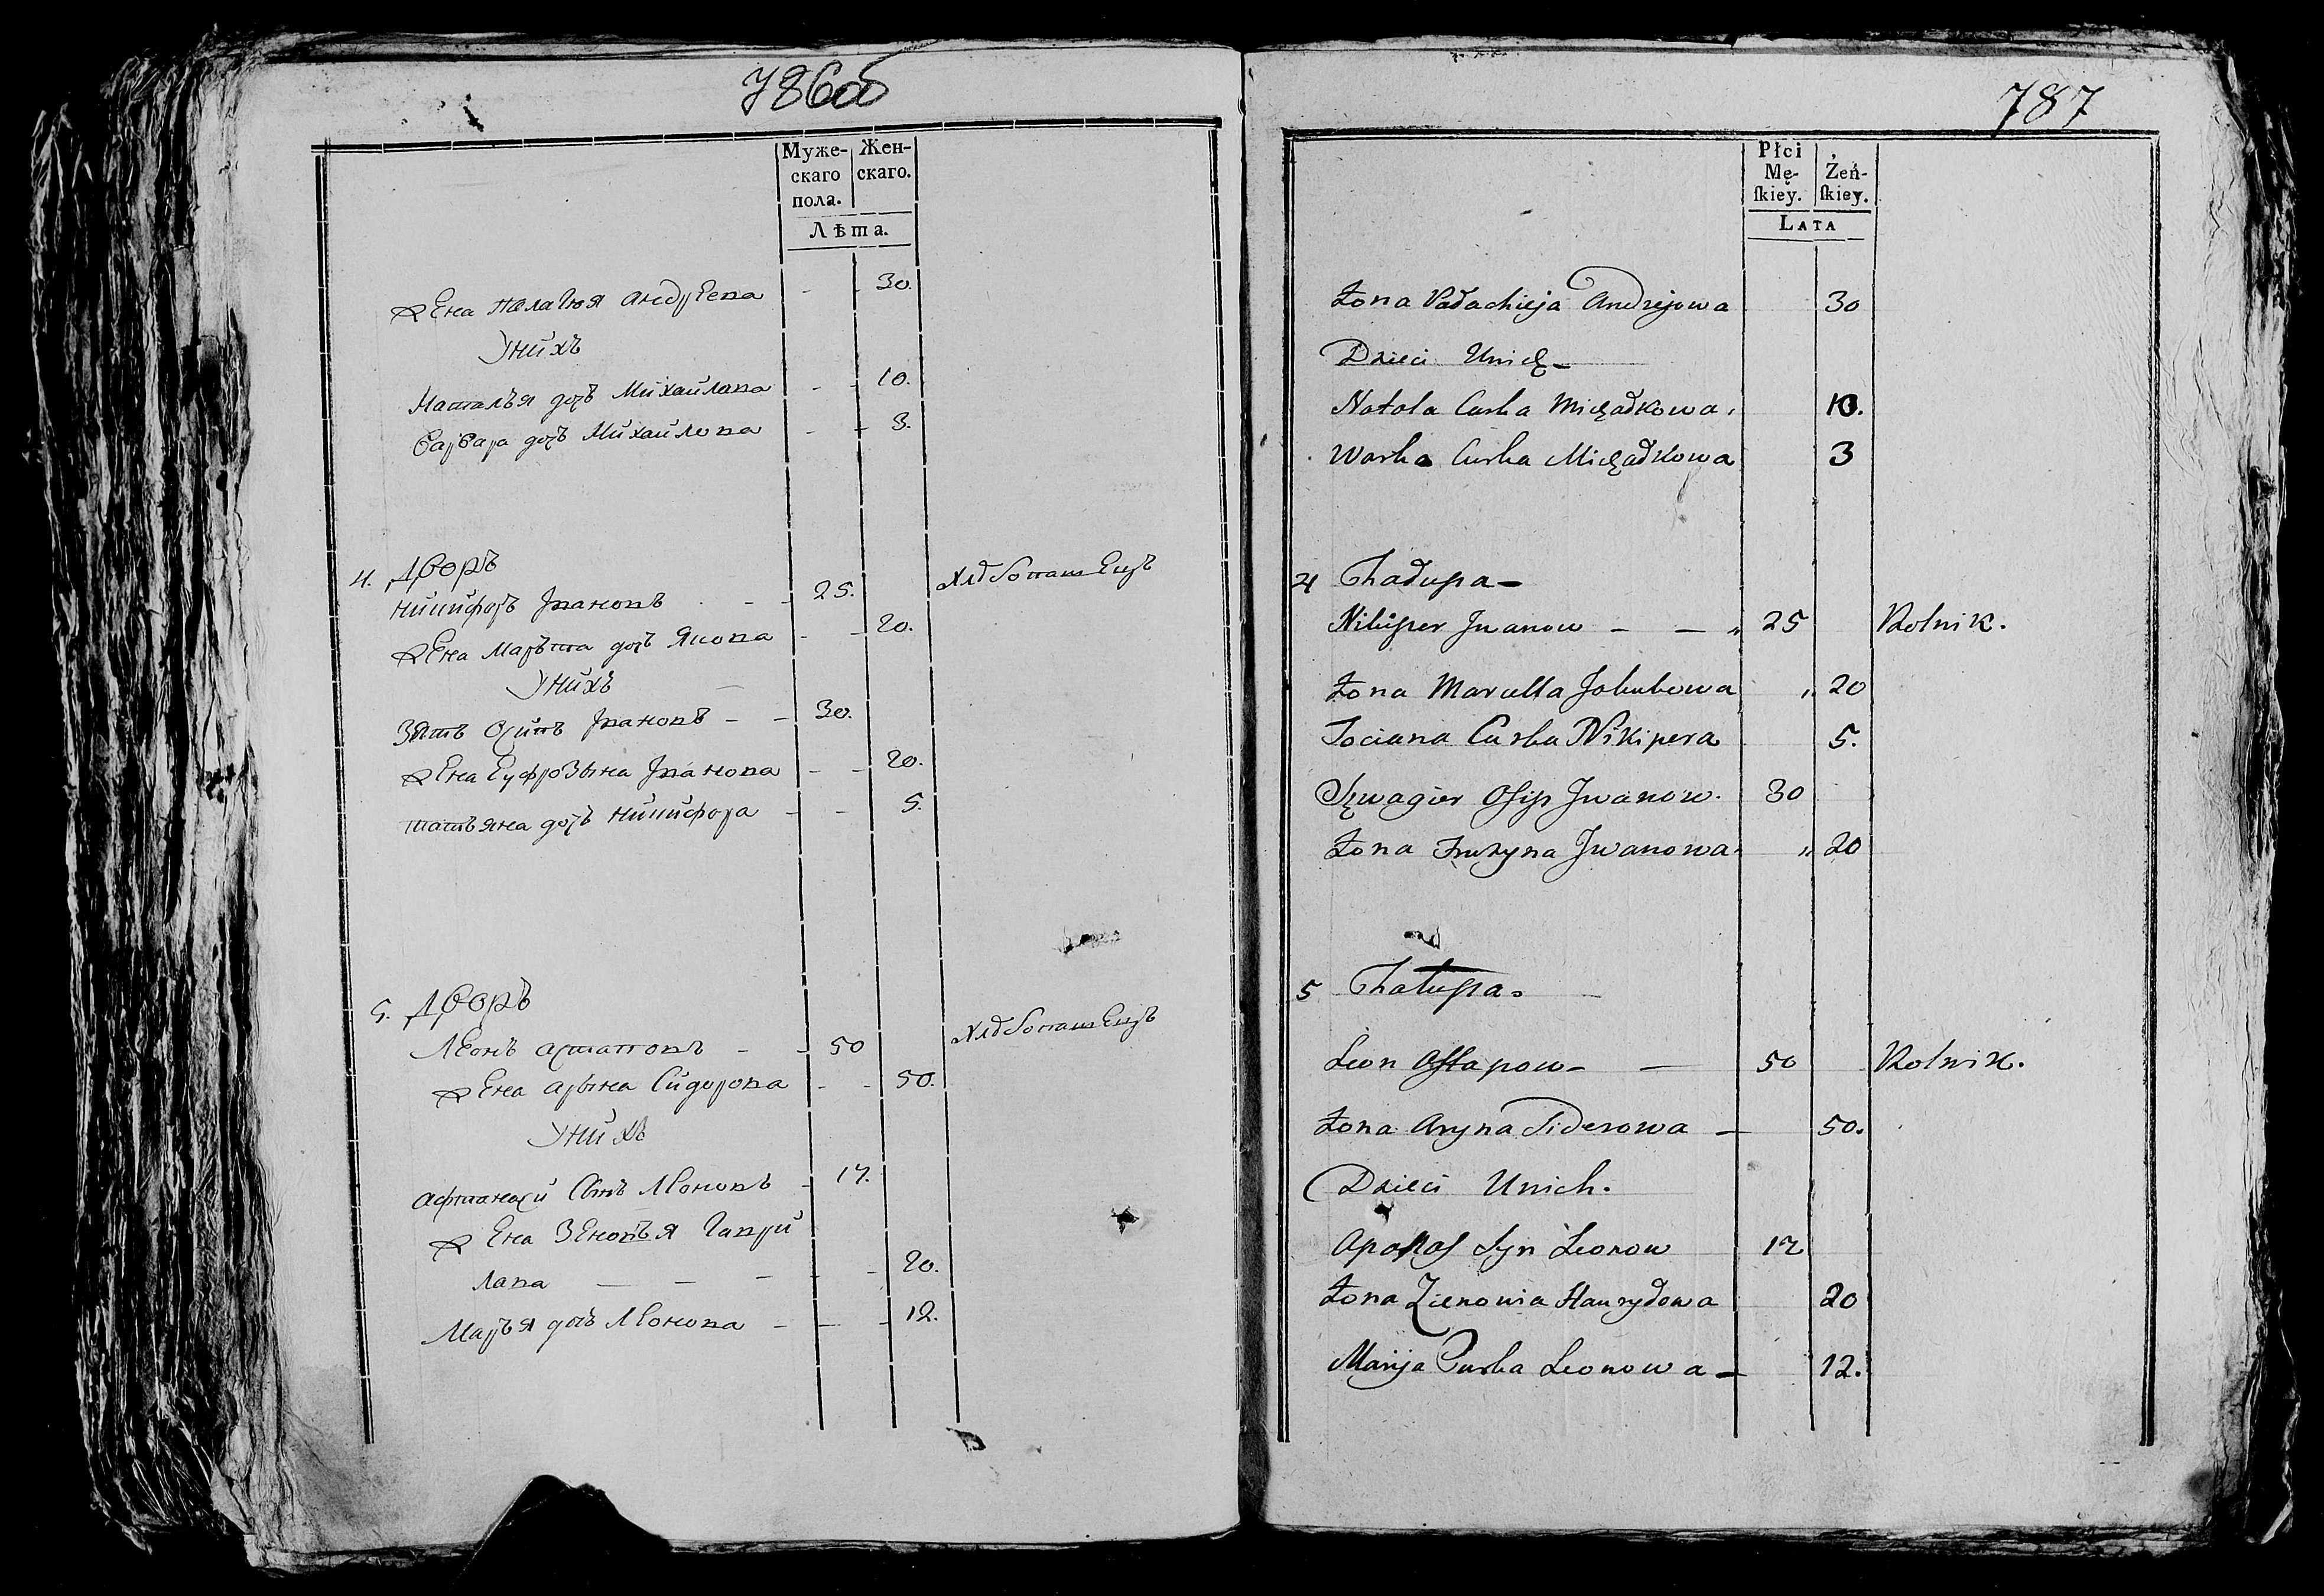 786об
Муже-
скаго
пола.
Жен-
скаго.
Лѣта.
жена Пелагея Андрѣева - - 30.
У нихъ
Наталья дочь Михайлова - - 10.
Варвара дочь Михайлова - - 3.
4. Дворъ
Никифоръ Ивановъ - - 25. Хлѣбопашецъ
жена Марьта дочь Якова - - 20.
У нихъ
Зять Осипъ Ивановъ - - 30.
жена Еуфрозына Иванова - - 20.
Татьяна дочь Никифора - - 5.
5. Дворъ
Леонъ Астаповъ - - 50 Хлѣбопашецъ
жена Арына Сидорова - - 50.
У нихъ
Афанасй Сынъ Леоновъ - 17.
жена Зеновья Гаври
лова - - - - - 20.
Марья дочь Леонова - - - 12.
787
Płci
Mę-
ſkiey.
Żeń-
ſkiey.
LATA
Żona Pałachieja Andrejowa 30
Dzieci Unich
Natola Curka Michałkowa 10.
Warka Curka Michałkowa 3
4 Chałupa
Nikiper Jwanow - - 25 Rolnik.
Żona Marutta Jakubowa 20
Taciana Curka Nikipera 5.
Szwagier Osip Jwanow. 30
Żona Fruzyna Jwanowa 20
5 Chałupa
Leon Ostapow - 50 Rolnik.
Żona Aryna Siderowa - 50.
Dzieci Unich.
Apanas Syn Leonow 17
Żona Zienowia Hauryłowa 20
Marija Curka Leonowa - 12.